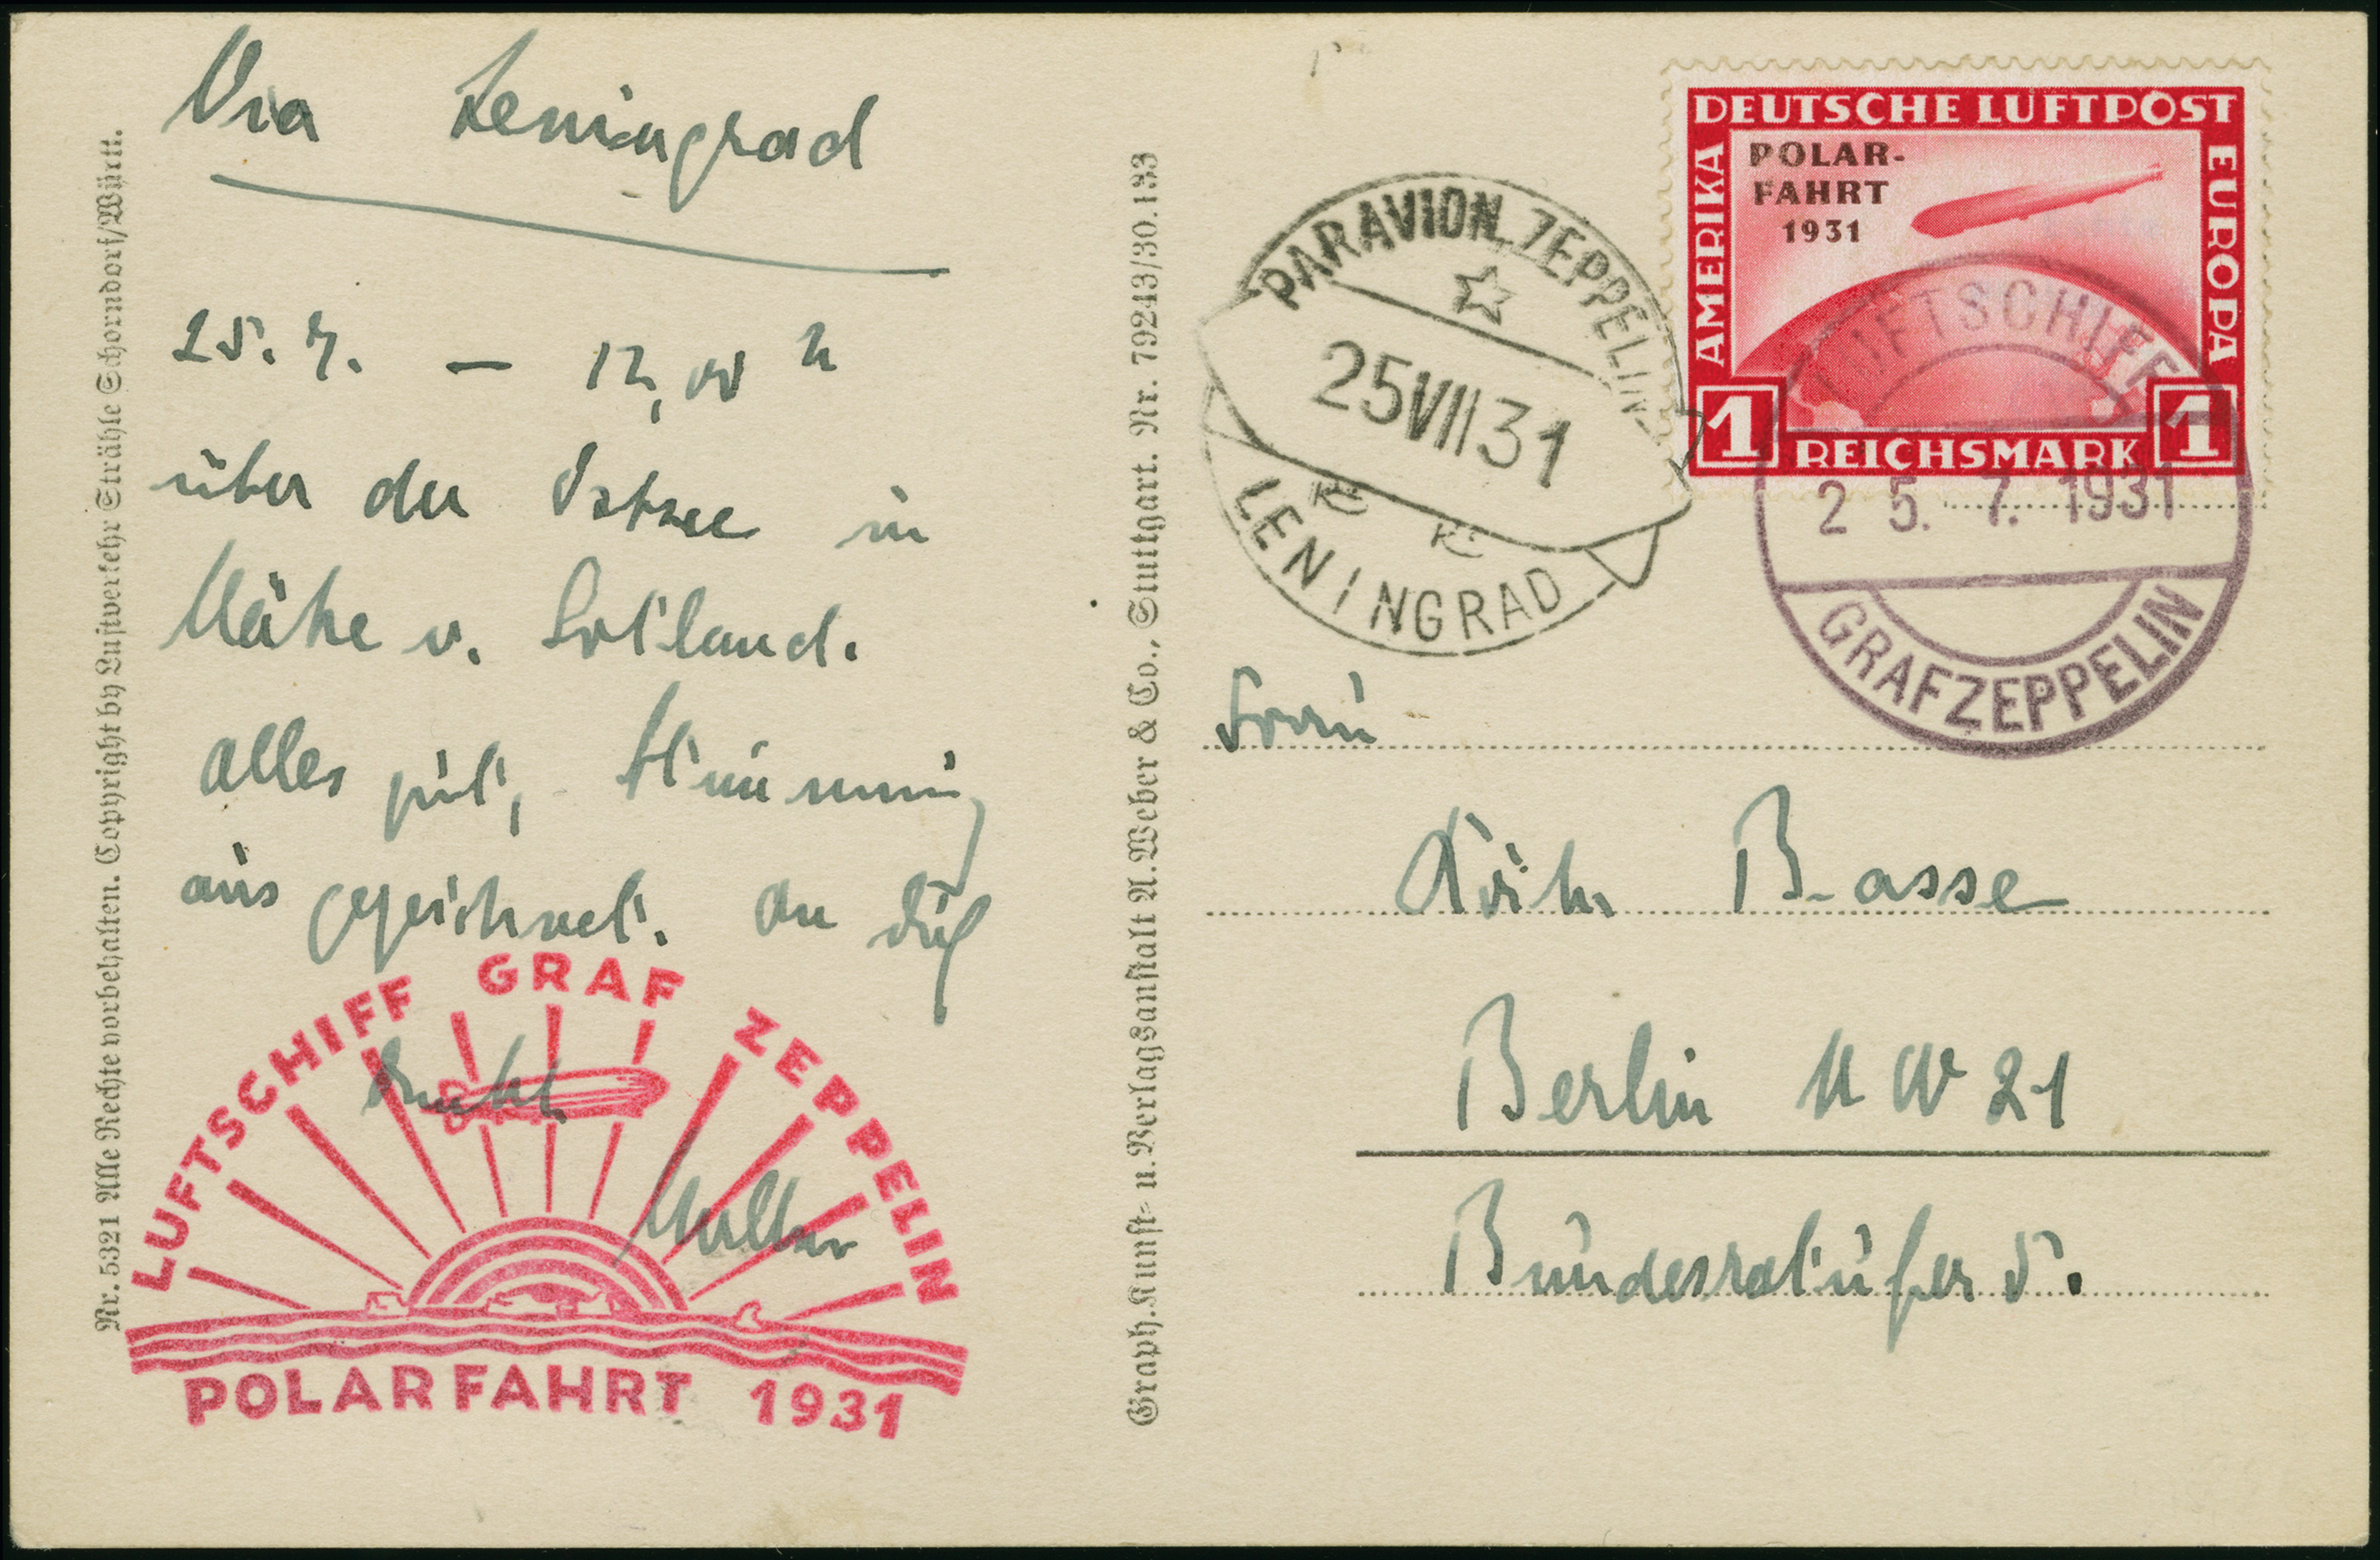 Via Leningrad
25. 7. – 12,00 h
über der Ostsee in
Nähe v. Gotland.
Alles gut, Stimmung
ausgezeichnet. An Dich
denkt
Walther
LUFTSCHIFF GRAF ZEPPELIN
POLARFAHRT 1931
Nr. 5321 Alle Rechte vorbehalten. Copyright by Luftverkehr Strähle Schorndorf/Württ.
Graph. Kunst- u. Verlagsanstalt A. Weber & Co., Stuttgart. Nr. 79243/30.133
PARAVION ZEPPELIN
25VII31
LENINGRAD
DEUTSCHE LUFTPOST
AMERIKA
EUROPA
POLAR-
FAHRT
1931
1 REICHSMARK 1
LUFTSCHIFF
25. 7. 1931
GRAF ZEPPELIN
Frau
Basse
Berlin NW 21
Bundesratufer 5.